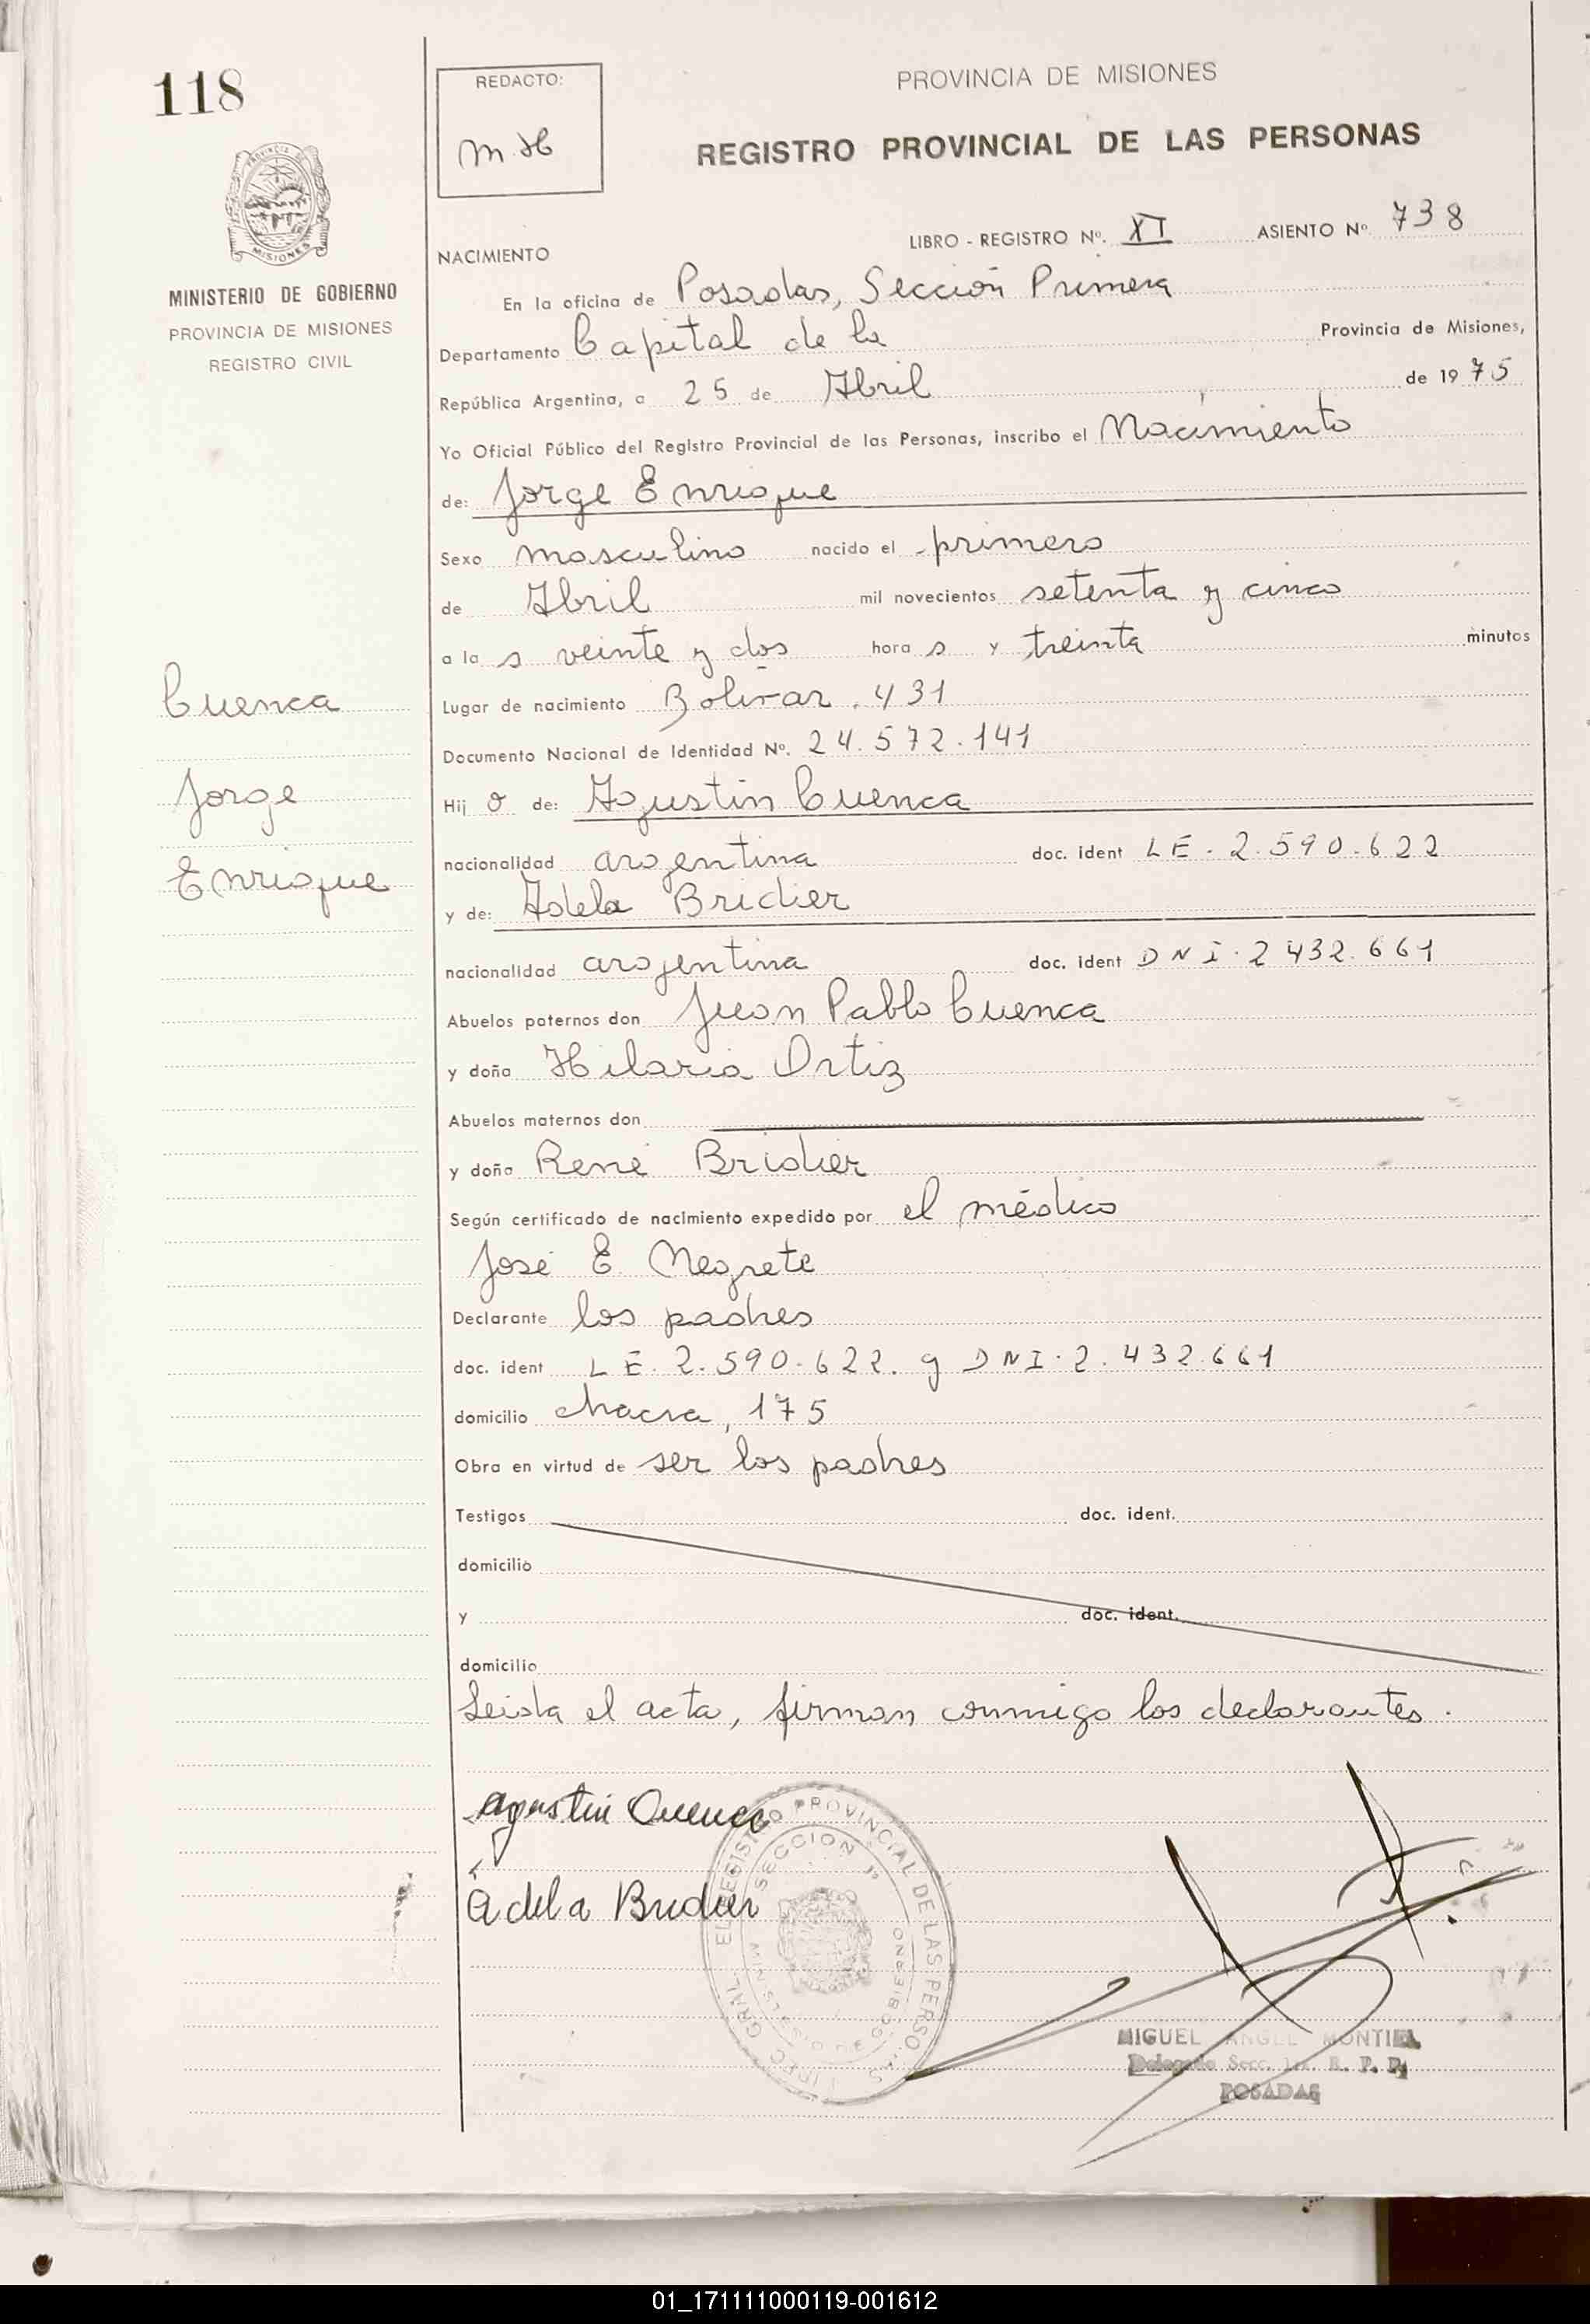 118
REDACTO:
M.H
PROVINCIA DE MISIONES
REGISTRO PROVINCIAL DE LAS PERSONAS
LIBRO - REGISTRO Nº. XI ASIENTO Nº 738
PROVINCIA DE
MISIONES
MINISTERIO DE GOBIERNO
PROVINCIA DE MISIONES
REGISTRO CIVIL
NACIMIENTO
En la oficina de Posadas, Sección Primera
Departamento Capital de la Provincia de Misiones,
República Argentina, a 25 de Abril de 1975
Yo Oficial Público del Registro Provincial de las Personas, inscribo el Nacimiento
de: Jorge Enrique
Sexo masculino nacido el primero
de Abril mil novecientos setenta y cinco
a la s veinte y dos hora s y treinta minutos
Lugar de nacimiento Bolívar, 431
Documento Nacional de Identidad Nº. 24.572.141
Hij o de: Agustin Cuenca
nacionalidad argentina doc. ident LE. 2.590.622
y de: Adela Bridier
nacionalidad argentina doc. ident DNI. 2 432.661
Abuelos paternos don Juan Pablo Cuenca
y doña Hilaria Ortiz
Abuelos maternos don
y doña René Bridier
Según certificado de nacimiento expedido por el médico
José E. Negrete
Declarante los padres
doc. ident LE. 2.590.622. y DNI. 2.432.661
domicilio chacra, 175
Obra en virtud de ser los padres
Testigos doc. ident.
domicilio
y doc. ident.
domicilio
Leida el acta, firman conmigo los declarantes.
Cuenca
Jorge
Enrique
Agustin Cuenca
Adela Bridier
REGISTRO PROVINCIAL DE LAS PERSONAS
SECCION 1ª
MINISTERIO DE GOBIERNO
MIGUEL ANGEL MONTIEL
Delegado Secc. 1ra. R. P. P.
POSADAS
01_171111000119-001612